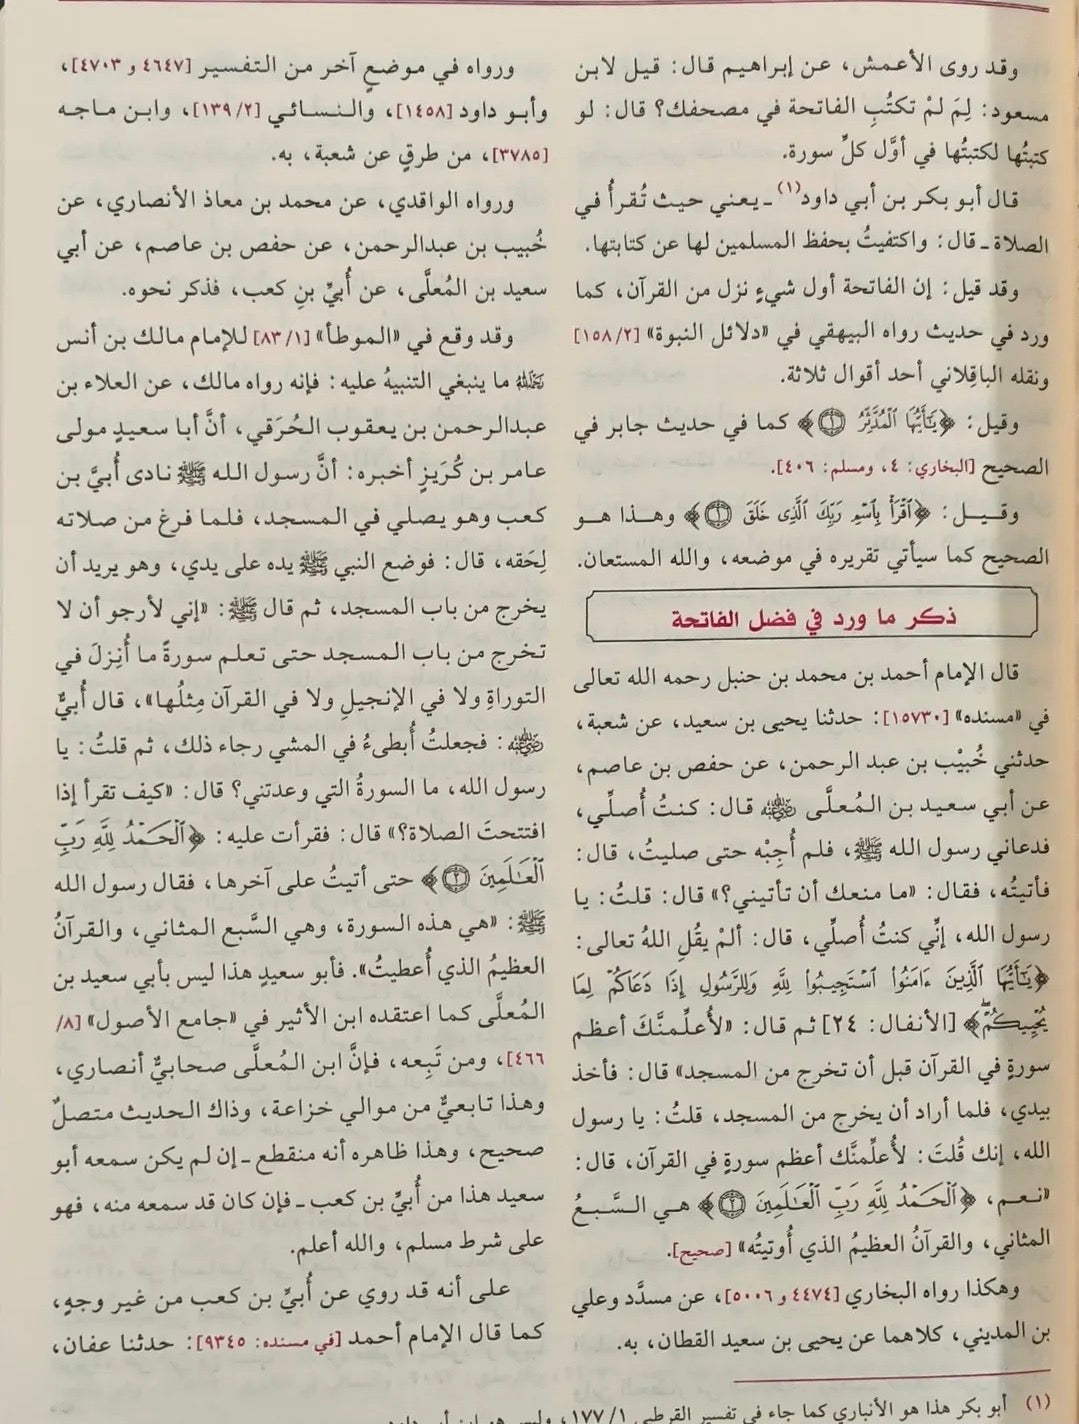 وقد روى الأعمش، عن إبراهيم قال: قيل لابن
مسعود: لِمَ لمْ تكتُبِ الفاتحة في مصحفك؟ قال: لو
كتبتُها لكتبتُها في أوَّل كلِّ سورة.
قال أبو بكر بن أبي داود(١) ـ يعني حيث تُقرأُ في
الصلاة ـ قال: واكتفيتُ بحفظ المسلمين لها عن كتابتها.
وقد قيل: إن الفاتحة أول شيءٍ نزل من القرآن، كما
ورد في حديث رواه البيهقي في «دلائل النبوة» [١٥٨/٢]
ونقله الباقِلاني أحد أقوال ثلاثة.
وقيل: ﴿يَٰٓأَيُّهَا ٱلْمُدَّثِّرُ ١﴾ كما في حديث جابر في
الصحيح [البخاري: ٤، ومسلم: ٤٠٦].
وقيل: ﴿ٱقْرَأْ بِٱسْمِ رَبِّكَ ٱلَّذِى خَلَقَ ١﴾ وهذا هو
الصحيح كما سيأتي تقريره في موضعه، والله المستعان.
ذكر ما ورد في فضل الفاتحة
قال الإمام أحمد بن محمد بن حنبل رحمه الله تعالى
في «مسنده» [١٥٧٣٠]: حدثنا يحيى بن سعيد، عن شعبة،
حدثني خُبيْب بن عبد الرحمن، عن حفص بن عاصم،
عن أبي سعيد بن المُعلَّى رضي الله عنه قال: كنتُ أُصلِّي،
فدعاني رسول الله ﷺ، فلم أُجِبْه حتى صليتُ، قال:
فأتيتُه، فقال: «ما منعك أن تأتيني؟» قال: قلتُ: يا
رسول الله، إنِّي كنتُ أُصلِّي، قال: ألمْ يقُلِ اللهُ تعالى:
﴿يَٰٓأَيُّهَا ٱلَّذِينَ ءَامَنُوا۟ ٱسْتَجِيبُوا۟ لِلَّهِ وَلِلرَّسُولِ إِذَا دَعَاكُمْ لِمَا
يُحْيِيكُمْ﴾ [الأنفال: ٢٤] ثم قال: «لأُعلِّمنَّكَ أعظم
سورةٍ في القرآن قبل أن تخرج من المسجد» قال: فأخذ
بيدي، فلما أراد أن يخرج من المسجد، قلتُ: يا رسول
الله، إنك قُلتَ: لأُعلِّمنَّك أعظم سورةٍ في القرآن، قال:
«نعم، ﴿ٱلْحَمْدُ لِلَّهِ رَبِّ ٱلْعَٰلَمِينَ ٢﴾ هي السَّبعُ
المثاني، والقرآنُ العظيمُ الذي أُوتيتُه» [صحيح].
وهكذا رواه البخاري [٤٤٧٤ و ٥٠٠٦]، عن مسدَّد وعلي
بن المديني، كلاهما عن يحيى بن سعيد القطان، به.
ورواه في موضعٍ آخر من التفسير [٤٦٤٧ و ٤٧٠٣]،
وأبو داود [١٤٥٨]، والنسائي [١٣٩/٢]، وابن ماجه
[٣٧٨٥]، من طرقٍ عن شعبة، به.
ورواه الواقدي، عن محمد بن معاذ الأنصاري، عن
خُبيب بن عبدالرحمن، عن حفص بن عاصم، عن أبي
سعيد بن المُعلَّى، عن أُبيِّ بنِ كعب، فذكر نحوه.
وقد وقع في «الموطأ» [٨٣/١] للإمام مالك بن أنس
رحمه الله ما ينبغي التنبيهُ عليه: فإنه رواه مالك، عن العلاء بن
عبدالرحمن بن يعقوب الحُرَقي، أنَّ أبا سعيدٍ مولى
عامر بن كُرَيزٍ أخبره: أنَّ رسول الله ﷺ نادى أُبيَّ بن
كعب وهو يصلي في المسجد، فلما فرغ من صلاته
لِحَقه، قال: فوضع النبي ﷺ يده على يدي، وهو يريد أن
يخرج من باب المسجد، ثم قال ﷺ: «إني لأرجو أن لا
تخرج من باب المسجد حتى تعلم سورةً ما أُنزِلَ في
التوراةِ ولا في الإنجيلِ ولا في القرآن مِثلُها»، قال أُبيٌّ
رضي الله عنه: فجعلتُ أُبطىءُ في المشي رجاء ذلك، ثم قلتُ: يا
رسول الله، ما السورةُ التي وعدتني؟ قال: «كيف تقرأ إذا
افتتحتَ الصلاة؟» قال: فقرأت عليه: ﴿ٱلْحَمْدُ لِلَّهِ رَبِّ
ٱلْعَٰلَمِينَ ٢﴾ حتى أتيتُ على آخرها، فقال رسول الله
ﷺ: «هي هذه السورة، وهي السَّبع المثاني، والقرآنُ
العظيمُ الذي أُعطيتُ». فأبو سعيدٍ هذا ليس بأبي سعيد بن
المُعلَّى كما اعتقده ابن الأثير في «جامع الأصول» [٨/
٤٦٦]، ومن تَبِعه، فإنَّ ابن المُعلَّى صحابيٌّ أنصاري،
وهذا تابعيٌّ من موالي خزاعة، وذاك الحديث متصلٌ
صحيح، وهذا ظاهره أنه منقطع ـ إن لم يكن سمعه أبو
سعيد هذا من أُبيِّ بن كعب ـ فإن كان قد سمعه منه، فهو
على شرط مسلم، والله أعلم.
على أنه قد روي عن أُبيِّ بن كعب من غير وجهٍ،
كما قال الإمام أحمد [في مسنده: ٩٣٤٥]: حدثنا عفان،
(١) أبو بكر هذا هو الأنباري كما جاء في تفسير القرطبي ١٧٧/١، وليس هو ابن أبي داود